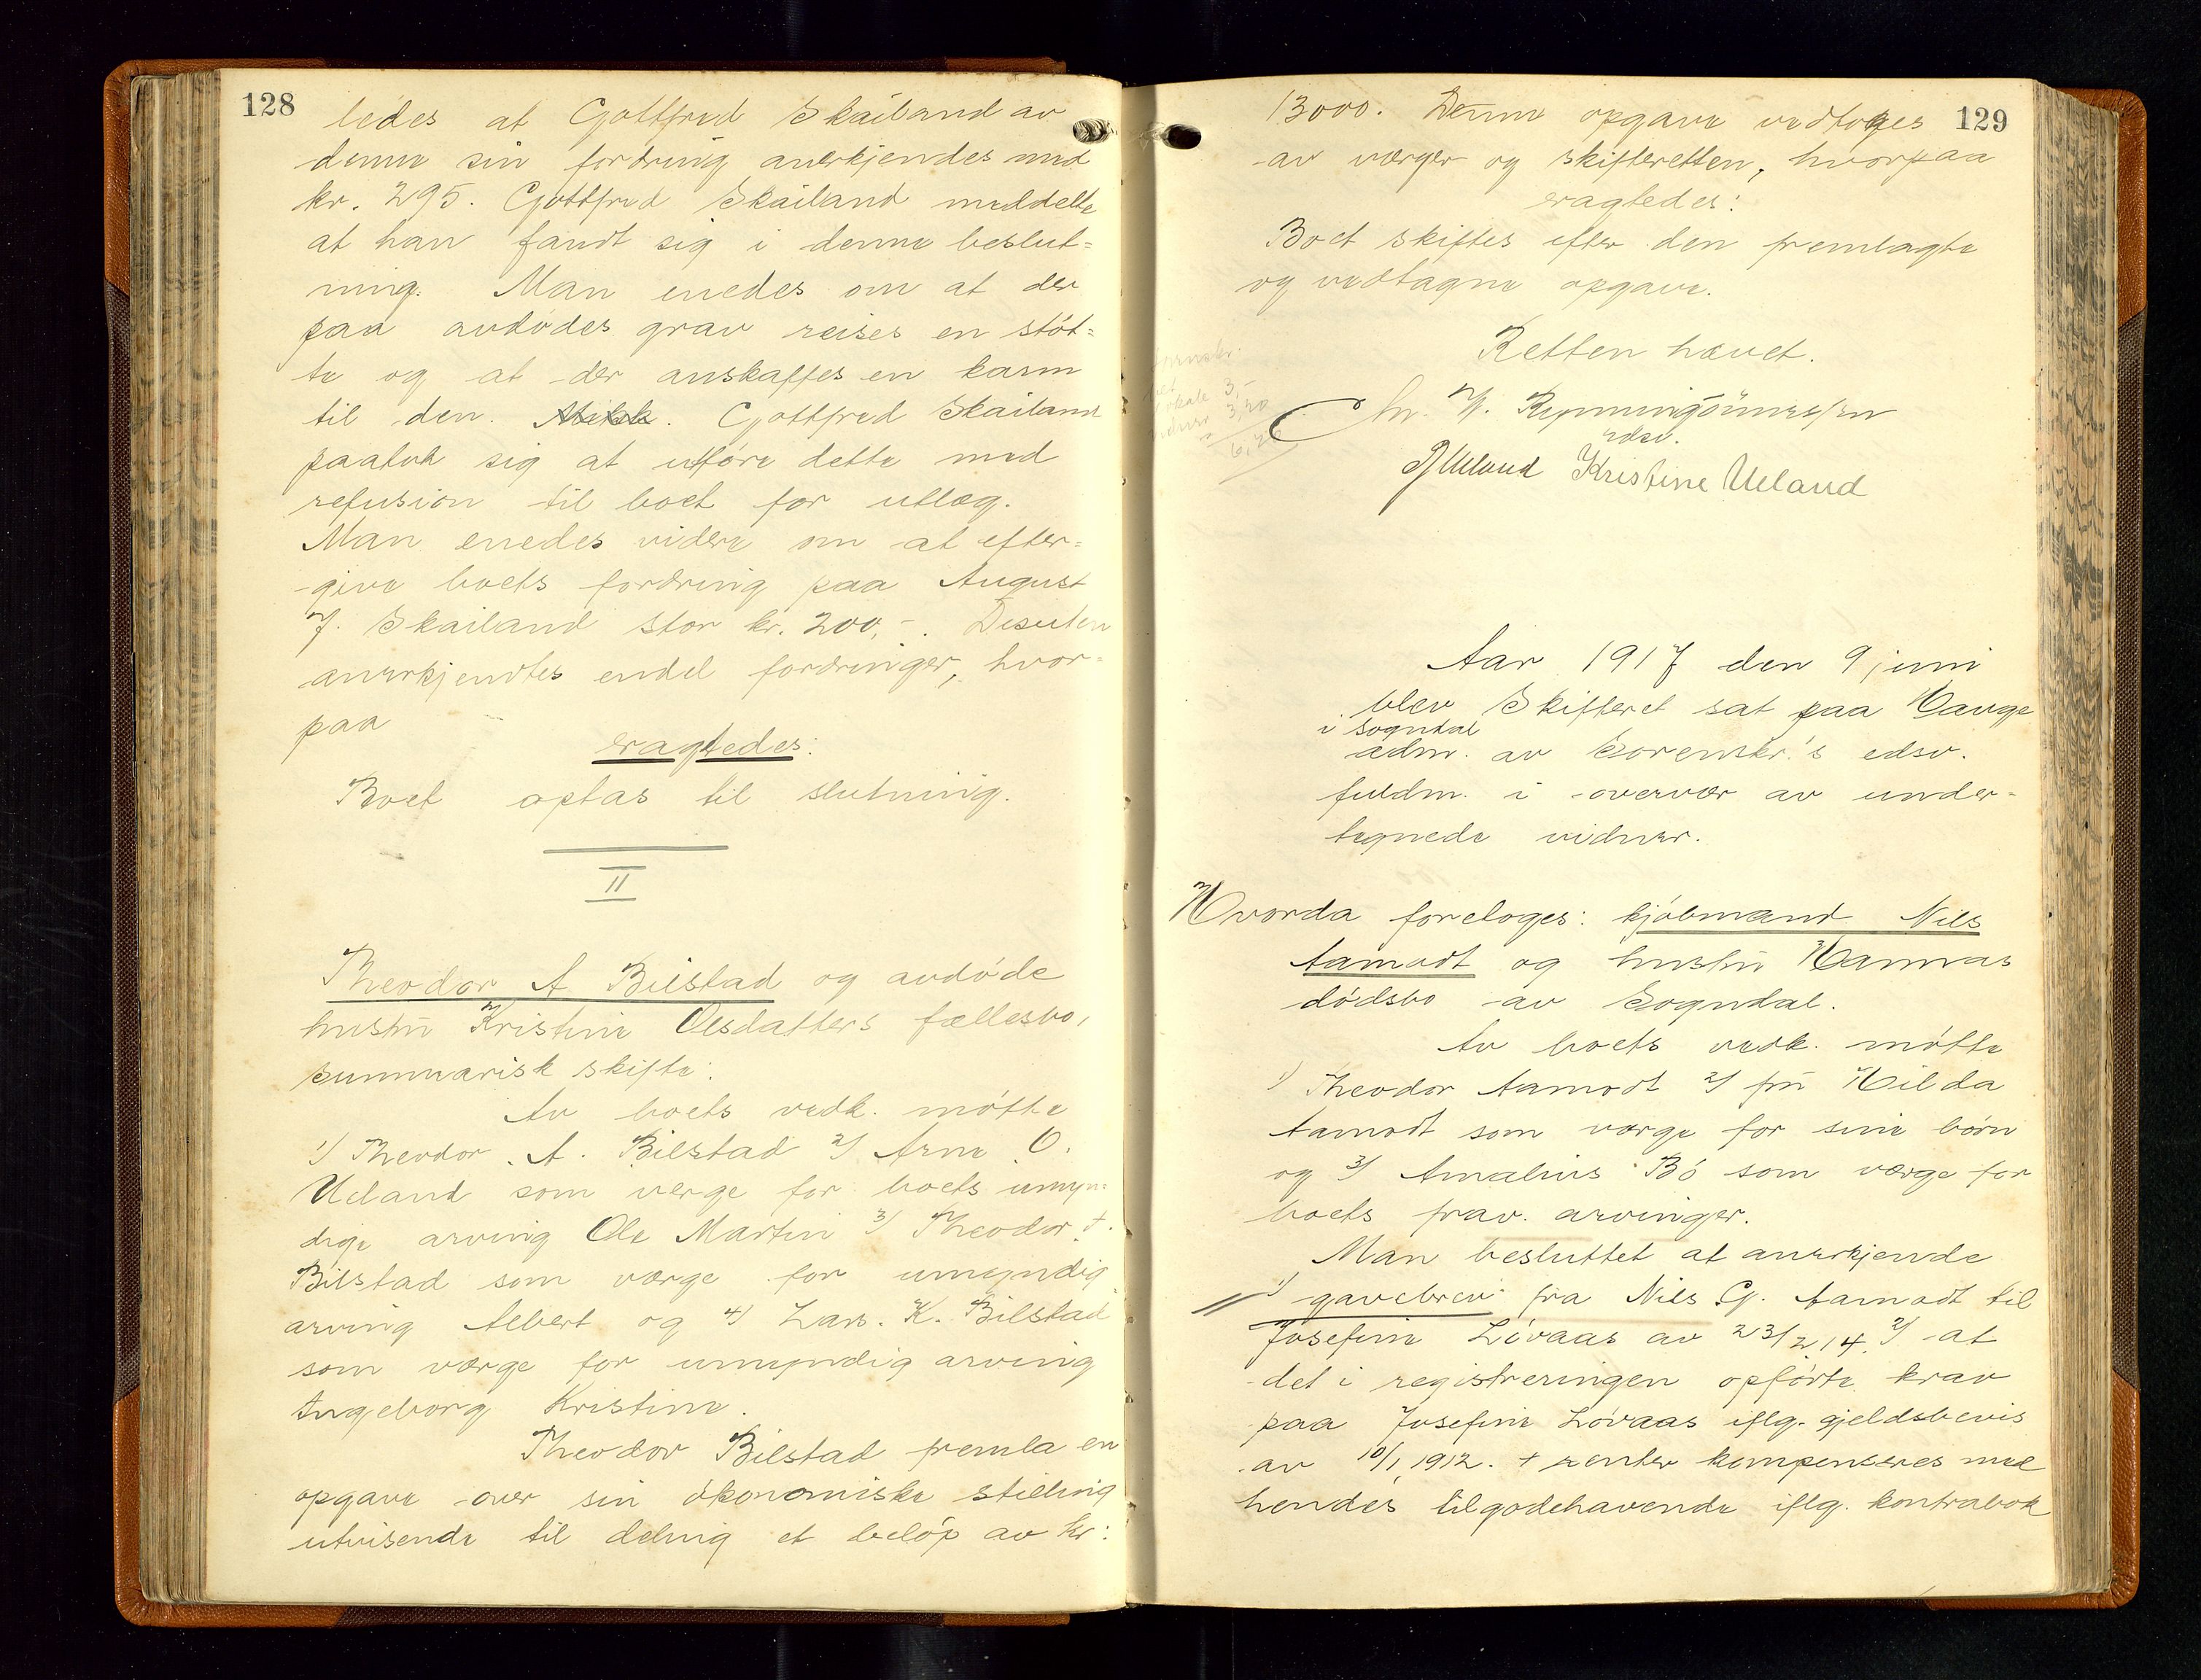 128
ledes at Gottfred Skailand av
denne sin fordring anerkjendes med
kr. 295. Gottfred Skailand meddelte
at han fandt sig i denne beslut=
ning. Man enedes om at der
paa avdødes grav reises en støt=
te og at der anskaffes en karm
til den. Gottfred Skailand
paatok sig at utføre dette med
refusion til boet for utlæg.
Man enedes videre om at efter=
give boets fordring paa August
J. Skailand stor kr. 200,-. Desuten
anerkjendtes endel fordringer, hvor=
paa
eragtedes:
Boet optas til slutning.
II
Theodor A. Bilstad og avdøde
hustru Kristine Olsdatters fællesbo,
summarisk skifte:
Av boets vedk. møtte
1/ Theodor A. Bilstad 2/ Arne O.
Ueland som verge for boets umyn=
dige arving Ole Martin 3/ Theodor A.
Bilstad som værge for umyndig
arving Albert og 4/ Lars K. Bilstad
som værge for umyndig arving
Ingeborg Kristine.
Theodor Bilstad fremla en
opgave over sin økonomiske stilling
utvisende til deling et beløp av kr:
129
13000. Denne opgave vedtoges
av værger og skifteretten, hvorpaa
eragtedes:
Boet skiftes efter den fremlagte
og vedtagne opgave.
Retten hævet.
edsv.
Ueland Kristine Ueland
3,-
3,20
6,20
Aar 1917 den 9 juni
blev Skifteret sat paa Hauge
i Sogndal
adm. av Sorenskr.'s edsv.
fuldm. i overvær av under=
tegnede vidner.
Hvorda foretoges: kjøbmand Nils
Aamodt og hustru Hannas
dødsbo av Sogndal.
Av boets vedk. møtte
1/ Theodor Aamodt 2/ fru Hilda
Aamodt som værge for sine børn
og 3/ Amalius Bø som værge for
boets frav. arvinger.
Man besluttet at anerkjende
1/ gavebrev fra Nils G. Aamodt til
Josefine Løvaas av 23/2 14. 2/ at
det i registreringen opførte krav
paa Josefine Løvaas iflg. gjeldsbevis
av 10/1 1912. + renter kompenseres med
hendes tilgodehavende iflg. kontrabok